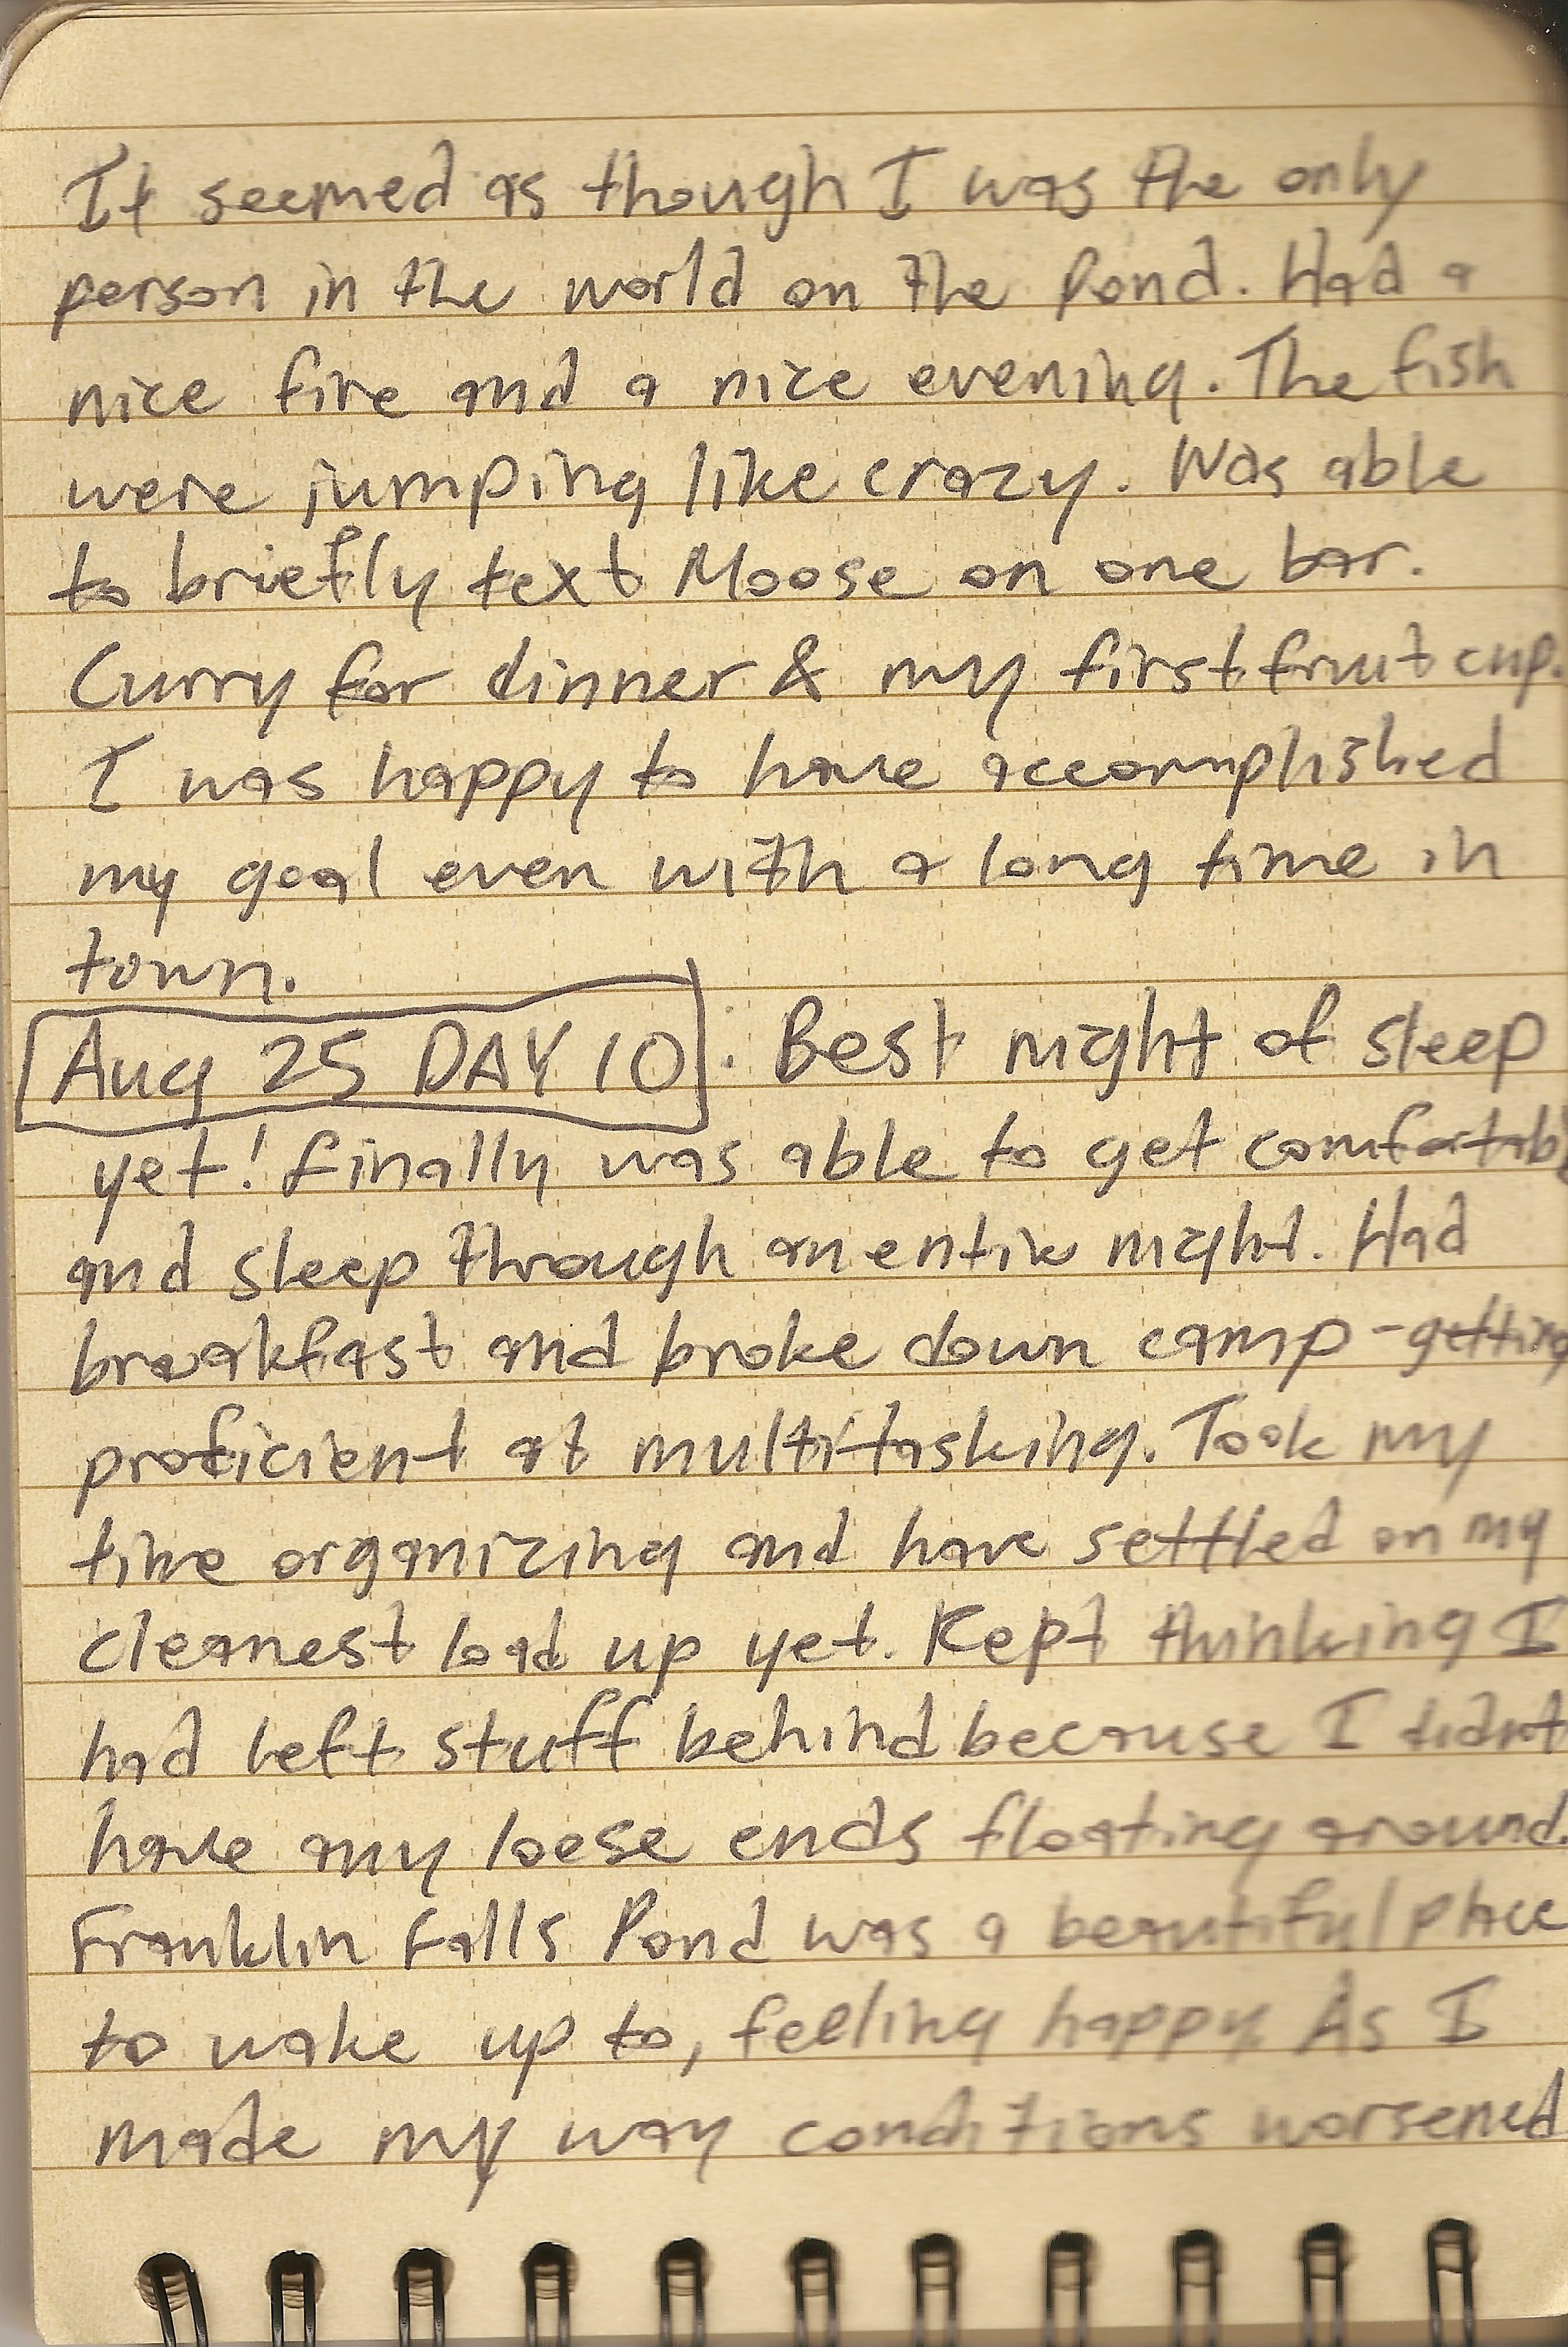 It seemed as though I was the only
person in the world on the Pond. Had a
nice fire and a nice evening. The fish
were jumping like crazy. Was able
to briefly text Moose on one bar.
Curry for dinner & my first fruit cup.
I was happy to have accomplished
my goal even with a long time in
town.
Aug 25 DAY 10: Best night of sleep
yet! Finally was able to get comfortabl
and sleep through an entire night. Had
breakfast and broke down camp - getting
proficient at multi-tasking. Took my
time organizing and have settled on my
cleanest load up yet. Kept thinking I
had left stuff behind because I didn't
have my loose ends floating around.
Franklin Falls Pond was a beautiful place
to wake up to, feeling happy. As I
made my way conditions worsened